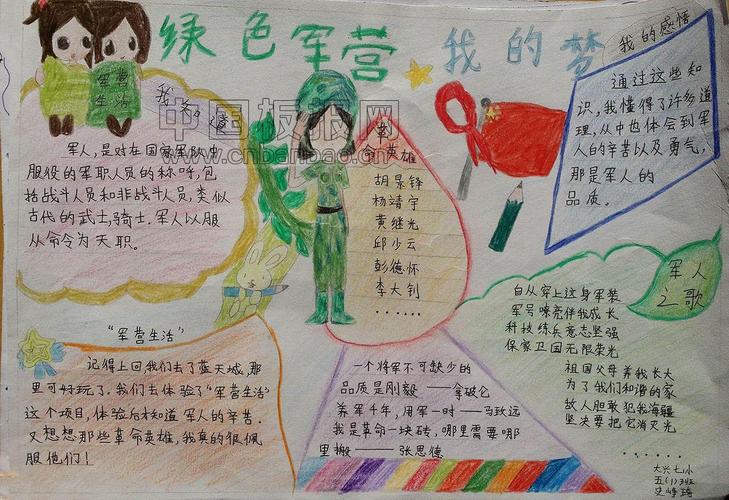 绿色军营 我的梦
军营
生活
我知道
军人,是对在国家军队中
服役的军职人员的称呼,包
括战斗人员和非战斗人员,类似
古代的武士,骑士.军人以服
从命令为天职。
中国板报网
www.cnbanbao.cn
革
命英雄
胡景铎
杨靖宇
黄继光
邱少云
彭德怀
李大钊
......
我的感悟
通过这些知
识,我懂得了许多道
理,从中也体会到军
人的辛苦以及勇气,
那是军人的
品质。
军人
之歌
自从穿上这身军装
军号嘹亮伴我成长
科技练兵意志坚强
保家卫国无限荣光
祖国父母养我长大
为了我们和谐的家
故人胆敢犯我海疆
坚决要把它消灭光
......
"军营生活"
记得上回我们去了蓝天城,那
里可好玩了.我们去体验了"军营生活"
这个项目,体验后才知道军人的辛苦.
又想想那些革命英雄,我真的很佩
服他们!
一个将军不可缺少的
品质是刚毅——拿破仑
养军千年,用军一时——马致远
我是革命一块砖,哪里需要哪
里搬——张思德
大兴七小
五(1)班